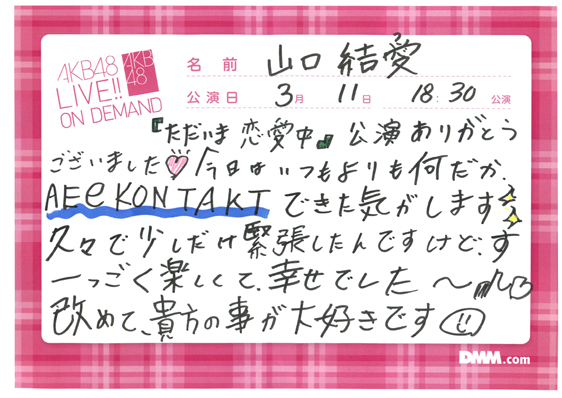 AKB48
LIVE!!
ON DEMAND
AKB
48
名前 山口 結愛
公演日 3月 11日 18:30 公演
『ただいま 恋愛中』公演ありがとう
ございました♡今日はいつもよりも何だか、
AEeKONTAKT できた気がします
久々で少しだけ緊張したんですけど、す
ーっごく楽しくて、幸せでした〜
改めて、貴方の事が大好きです
DMM.com